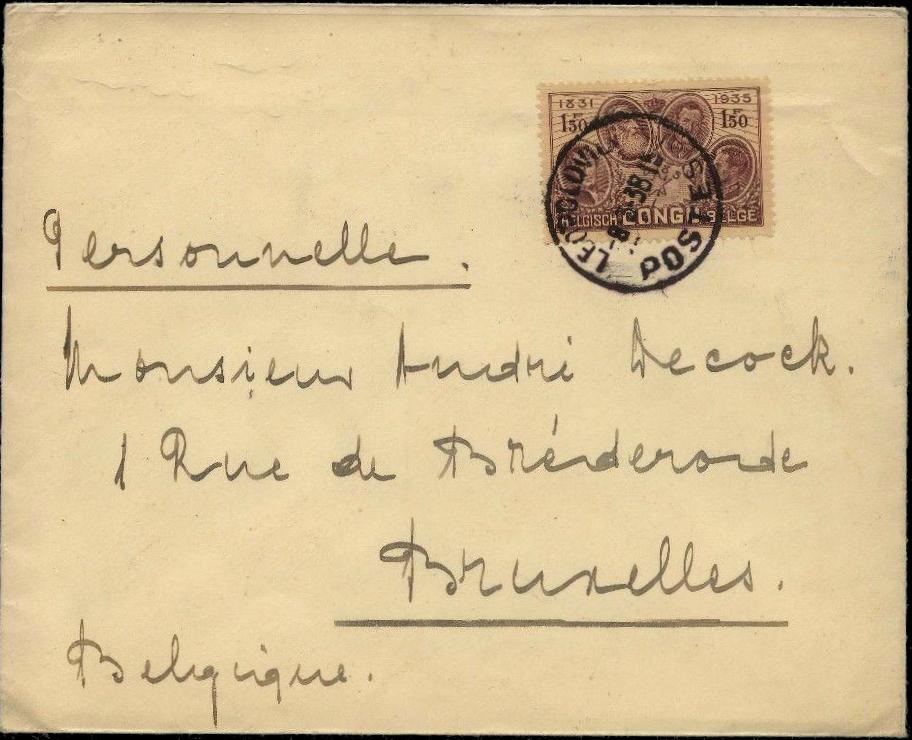 1831 1935
1.50 1.50
BELGISCH CONGO BELGE
LEOPOLDVILLE
POSTES
Personnelle.
Monsieur André Decock.
1 Rue de Bréderode
Bruxelles.
Belgique.